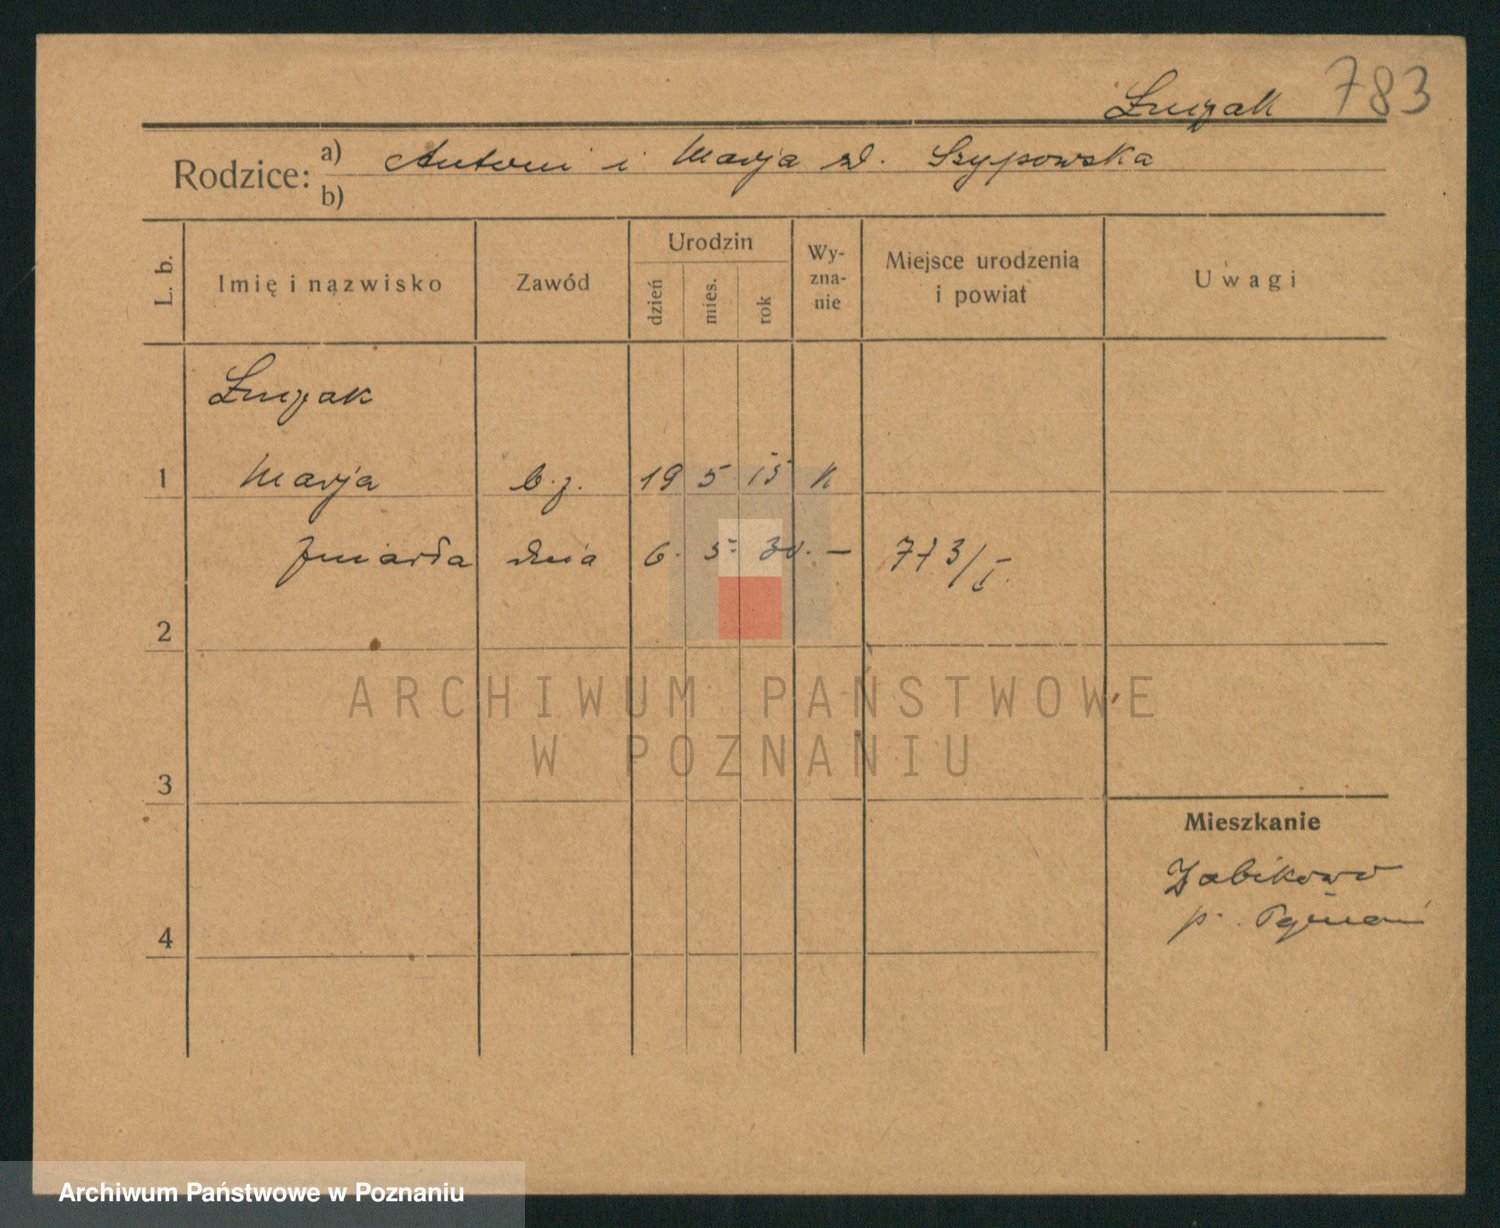 783
Rodzice: a) Antoni i Marja zd. Szypowska
b)
L. b.
Imię i nazwisko
Zawód
Urodzin
dzień
mies.
rok
Wy-
zna-
nie
Miejsce urodzenia
i powiat
Uwagi
1 Marja b.z. 19 5 15 k
zmarła dnia 6. 5. 30. — 773/I.
2
3
4
Mieszkanie
Żabikowo
p. Poznań
ARCHIWUM PAŃSTWOWE
W POZNANIU
Archiwum Państwowe w Poznaniu